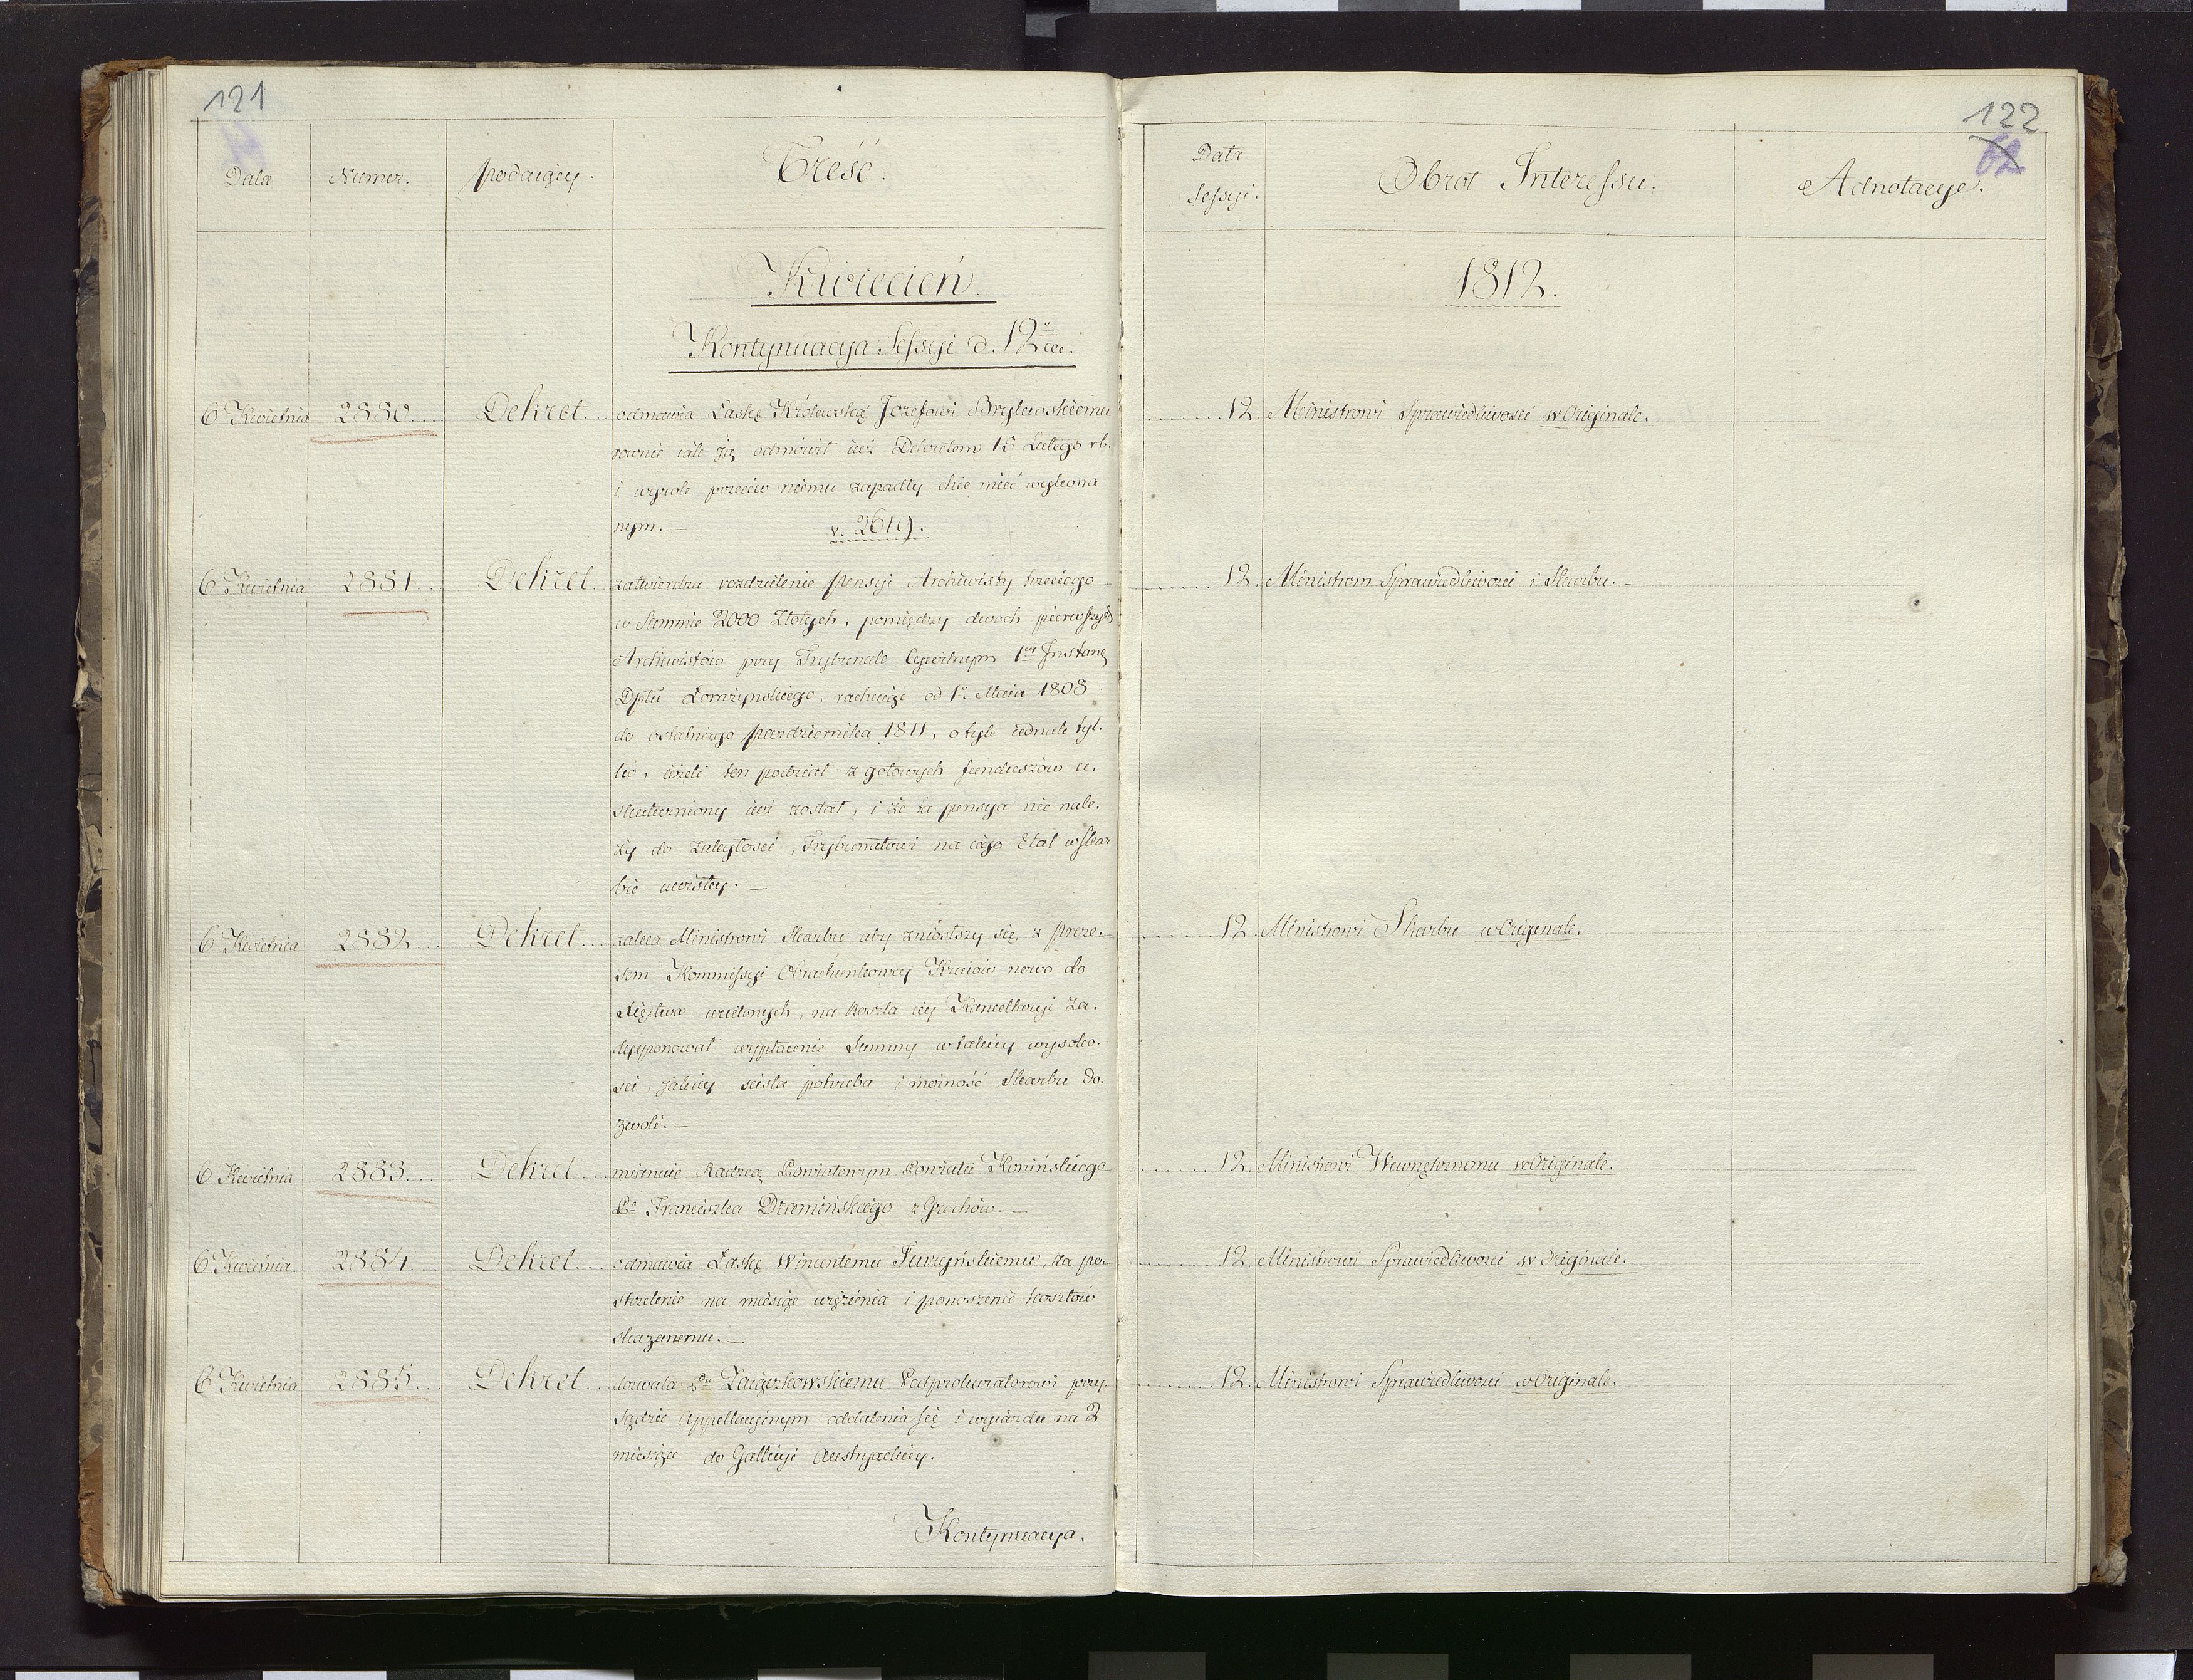 121
Data
Numer.
podaiący.
Treść.
Kwiecień.
Kontynuacya Sessyi d. 12º ce.
6 Kwietnia 2880.... Dekret... odmawia Łaskę Królewską Jozefowi Brylewskiemu
rownie iak ją odmówił iuż Dekretem 15 Lutego rb.
i wyrok przeciw niemu zapadły chce mieć wykona
nym. — v. 2619.
6 Kwietnia 2881... Dekret. zatwierdza rozdzielenie pensyi Archiwisty trzeciego
w Summie 2000 Złotych, pomiędzy dwoch pierwszych
Archiwistów przy Trybunale Cywilnym 1ey Instanc
Dptu Łomżynskiego, rachuiąc od 1º Maia 1808
do ostatniego pazdziernika 1811, o tyle iednak tyl-
ko, ieżeli ten podział z gotowych funduszów u-
skuteczniony iuż został, i że ta pensya nie nale-
ży do zaległosci, Trybunałowi na iego Etat w Skar
bie uwisłey. —
6 Kwietnia 2882... Dekret... zaleca Ministrowi Skarbu aby zniosłszy się z preze-
sem Kommissyi Obrachunkowey Kraiów nowo do
Xięstwa wcielonych, na koszta iey Kancellaryi za-
dysponował wypłacenie Summy w takiey wysoko-
sci, jakiey scisła potrzeba i możność Skarbu do-
zwoli. —
6 Kwietnia 2883.... Dekret... mianuie Radzcą Powiatowym Powiatu Konińskiego
Pa Franciszka Dramińskiego z Grochów. —
6 Kwietnia. 2884... Dekret... odmawia Łaskę Wincentemu Turzyńskiemu, za po-
strzelenie na miesiąc więzienia i ponoszenie kosztów
skazanemu. —
6 Kwietnia 2885... Dekret... dozwala Pu Zaiączkowskiemu Podprokuratorowi przy
Sądzie Appellacyinym oddalenia się i wyiazdu na 2
miesiące do Gallicyi Austryackiey.
Kontynuacya.
122
62
Data
Sessyi.
Obrot Interessu.
Adnotacye.
1812.
......12. Ministrowi Sprawiedliwosci w Originale.
......12. Ministrom Sprawiedliwosci i Skarbu. —
......12. Ministrowi Skarbu w Originale.
......12. Ministrowi Wewnętrznemu w Originale.
......12. Ministrowi Sprawiedliwosci w Originale.
......12. Ministrowi Sprawiedliwosci w Originale.